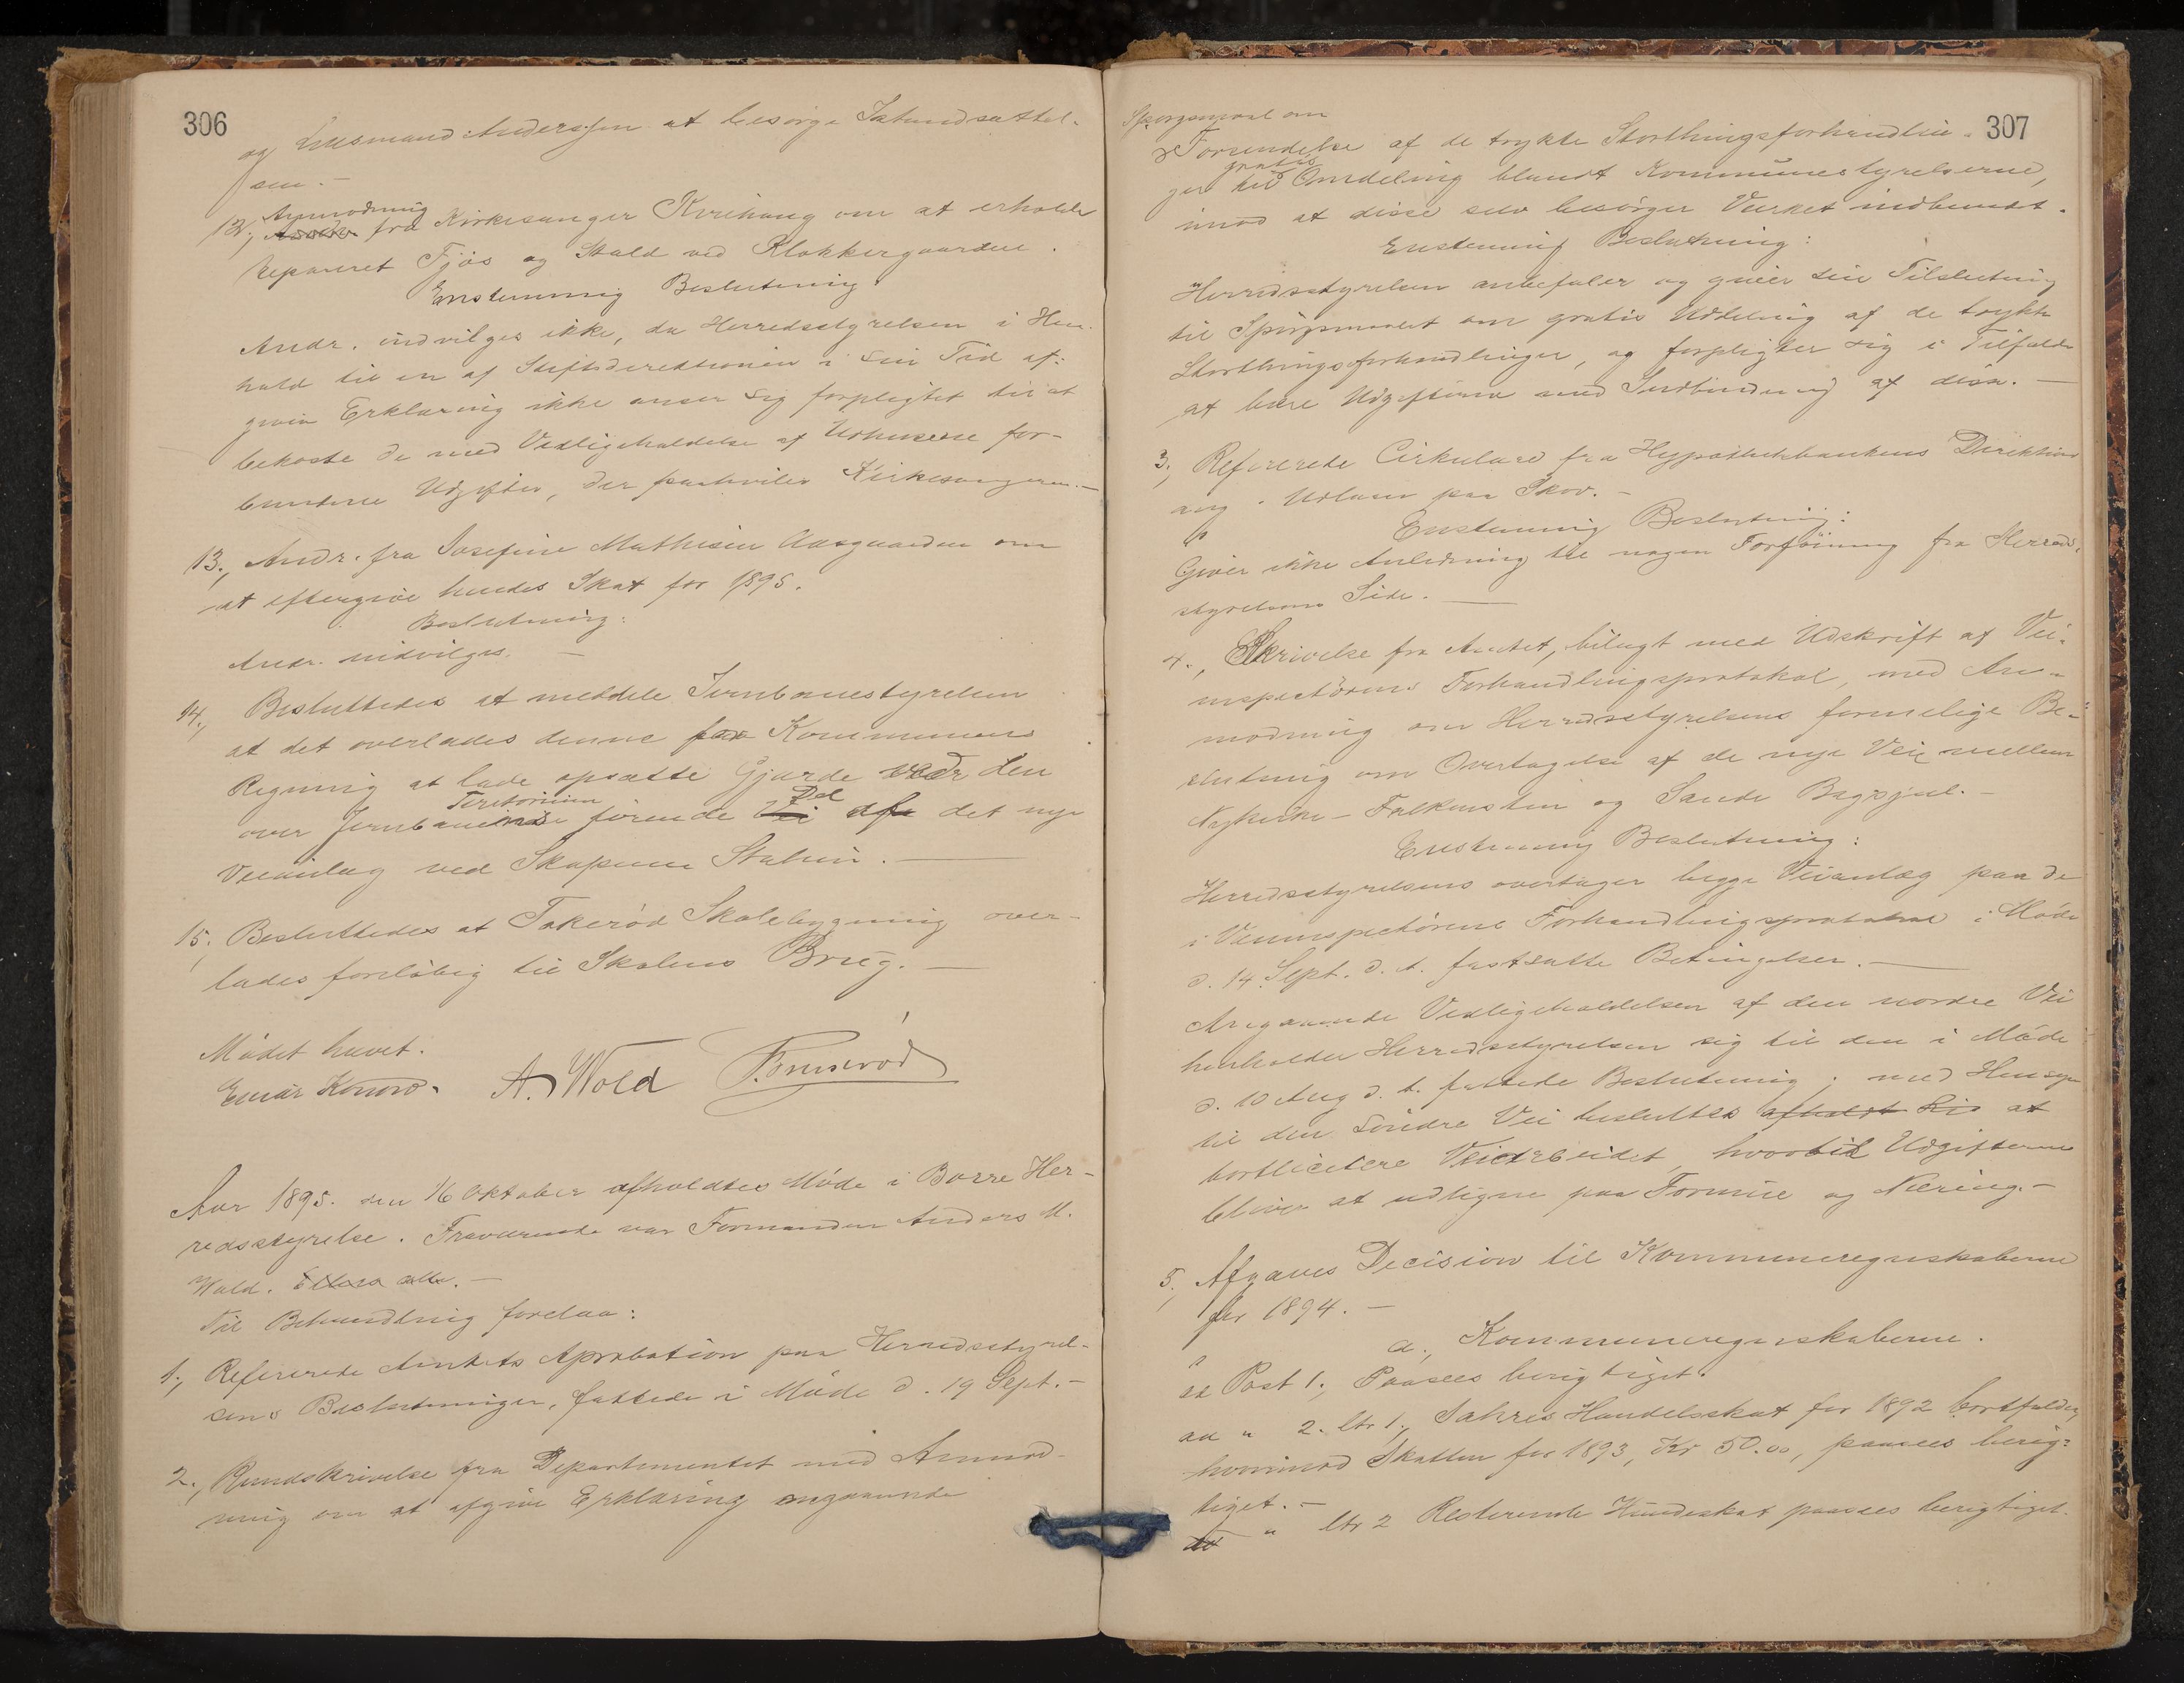 306
og Lensmand Anderssen at besørge Istandsættel-
sen.-
12., Anmodning fra Kirkesanger Kvihaug om at erholde
repareret Fjøs og Stald ved Klokkergaarden.
Enstemmig Beslutning:
Andr. indvilges ikke, da Herredsstyrelsen i Hen-
hold til en af Stiftsdirektionen i sin Tid af-
given Erklæring ikke anser sig forpligtet til at
bekoste de med Vedligeholdelse af Udhusene for-
bundne Udgifter, der paahviler Kirkesangeren.-
13., Andr. fra Josefine Mathisen Aasgaarden om
at eftergive hendes Skat for 1895.
Beslutning:
Andr. indvilges. -
14., Besluttedes at meddele Jernbanestyrelsen
at det overlades denne for Kommunens
Regning at lade opsætte Gjærde ved den
over Jernbanens Teritorium førende Del af det nye
Veianlæg ved Skopum Station. -
15., Besluttedes at Takerød Skolebygning over-
lades foreløbig til Skolens Brug. -
Mødet hævet.
Einar Konow. A. Wold Fornerød
Aar 1895. den 16 Oktober afholdtes Møde i Borre Her-
redsstyrelse. Fraværende var Formanden Anders M.
Wold. Ellers alle. -
Til Behandling forelaa:
1., Refererede Amtets Aprobation paa Herredsstyrel-
sens Beslutninger, fattede i Møde d. 19 Sept. -
2., Rundskrivelse fra Departementet med Anmod-
ning om at afgive Erklæring angaaende
307
Spørgsmaal om
Forsendelse af de trykte Storthingsforhandlin-
ger til gratis Omdeling blandt Kommunestyrelserne,
imod at disse selv besørger Værket indbundet.
Enstemmig Beslutning:
Herredsstyrelsen anbefaler og giver sin Tilslutning
til Spørgsmaalet om gratis Uddeling af de trykte
Storthingsforhandlinger, og forpligter sig i Tilfælde
at bære Udgifterne med Indbinding af disse. -
3., Refererede Cirkulære fra Hypothekbankens Direktion
ang. Udlaan paa Skov. -
Enstemmig Beslutning:
Giver ikke Anledning til nogen Forføining fra Herreds-
styrelsens Side. -
4., Skrivelse fra Amtet, bilagt med Udskrift af Vei-
inspektørens Forhandlingsprotokol, med An-
modning om Herredsstyrelsens formelige Be-
slutning om Overtagelse af de nye Veie mellem
Nykirke - Falkensten og Sande Bagsjul. -
Enstemmig Beslutning:
Herredsstyrelsens overtager begge Veianlæg paa de
i Veiinspektørens Forhandlingsprotokol i Møde
d. 14. Sept. d. A. fastsatte Betingelser. -
Angaaende Vedligeholdelsen af den nordre Vei
henholder Herredsstyrelsen sig til den i Møde
d. 10 Aug d. A. fattede Beslutning; med Hensyn
til den søndre Vei besluttes afholdt Lic at
bortlicitere Veiarbeidet, hvortil Udgifterne
bliver at udligne paa Formue og Næring. -
5., Afgaves Decision til Kommuneregnskaberne
for 1894. -
a., Kommuneregnskaberne.
ad Post 1., Paasees berigtiget.
ad " 2. ltr 1., Sahres Handelsskat for 1892 bortfalder,
hvorimod Skatten for 1893, Kr 50.00, paasees berig-
tiget. -
" ltr 2 Resterende Hundeskat paasees berigtiget.